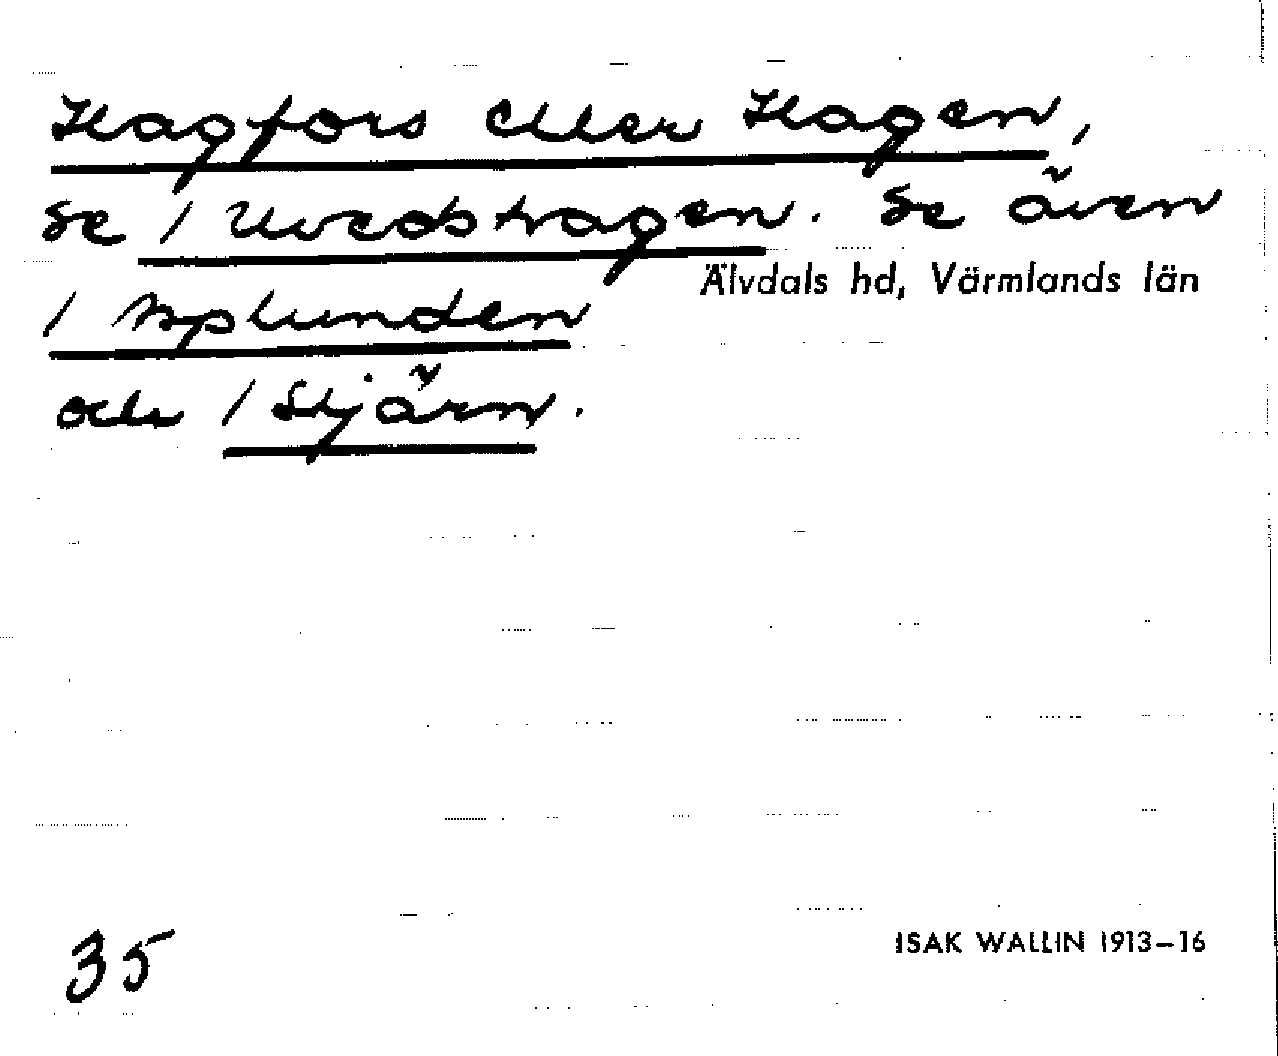 Hagfors eller Hagen,
se / Uvedstragen. Se även
Älvdals hd, Värmlands län
/ Asplunden
och / Stjärn.
35
ISAK WALLIN 1913–16